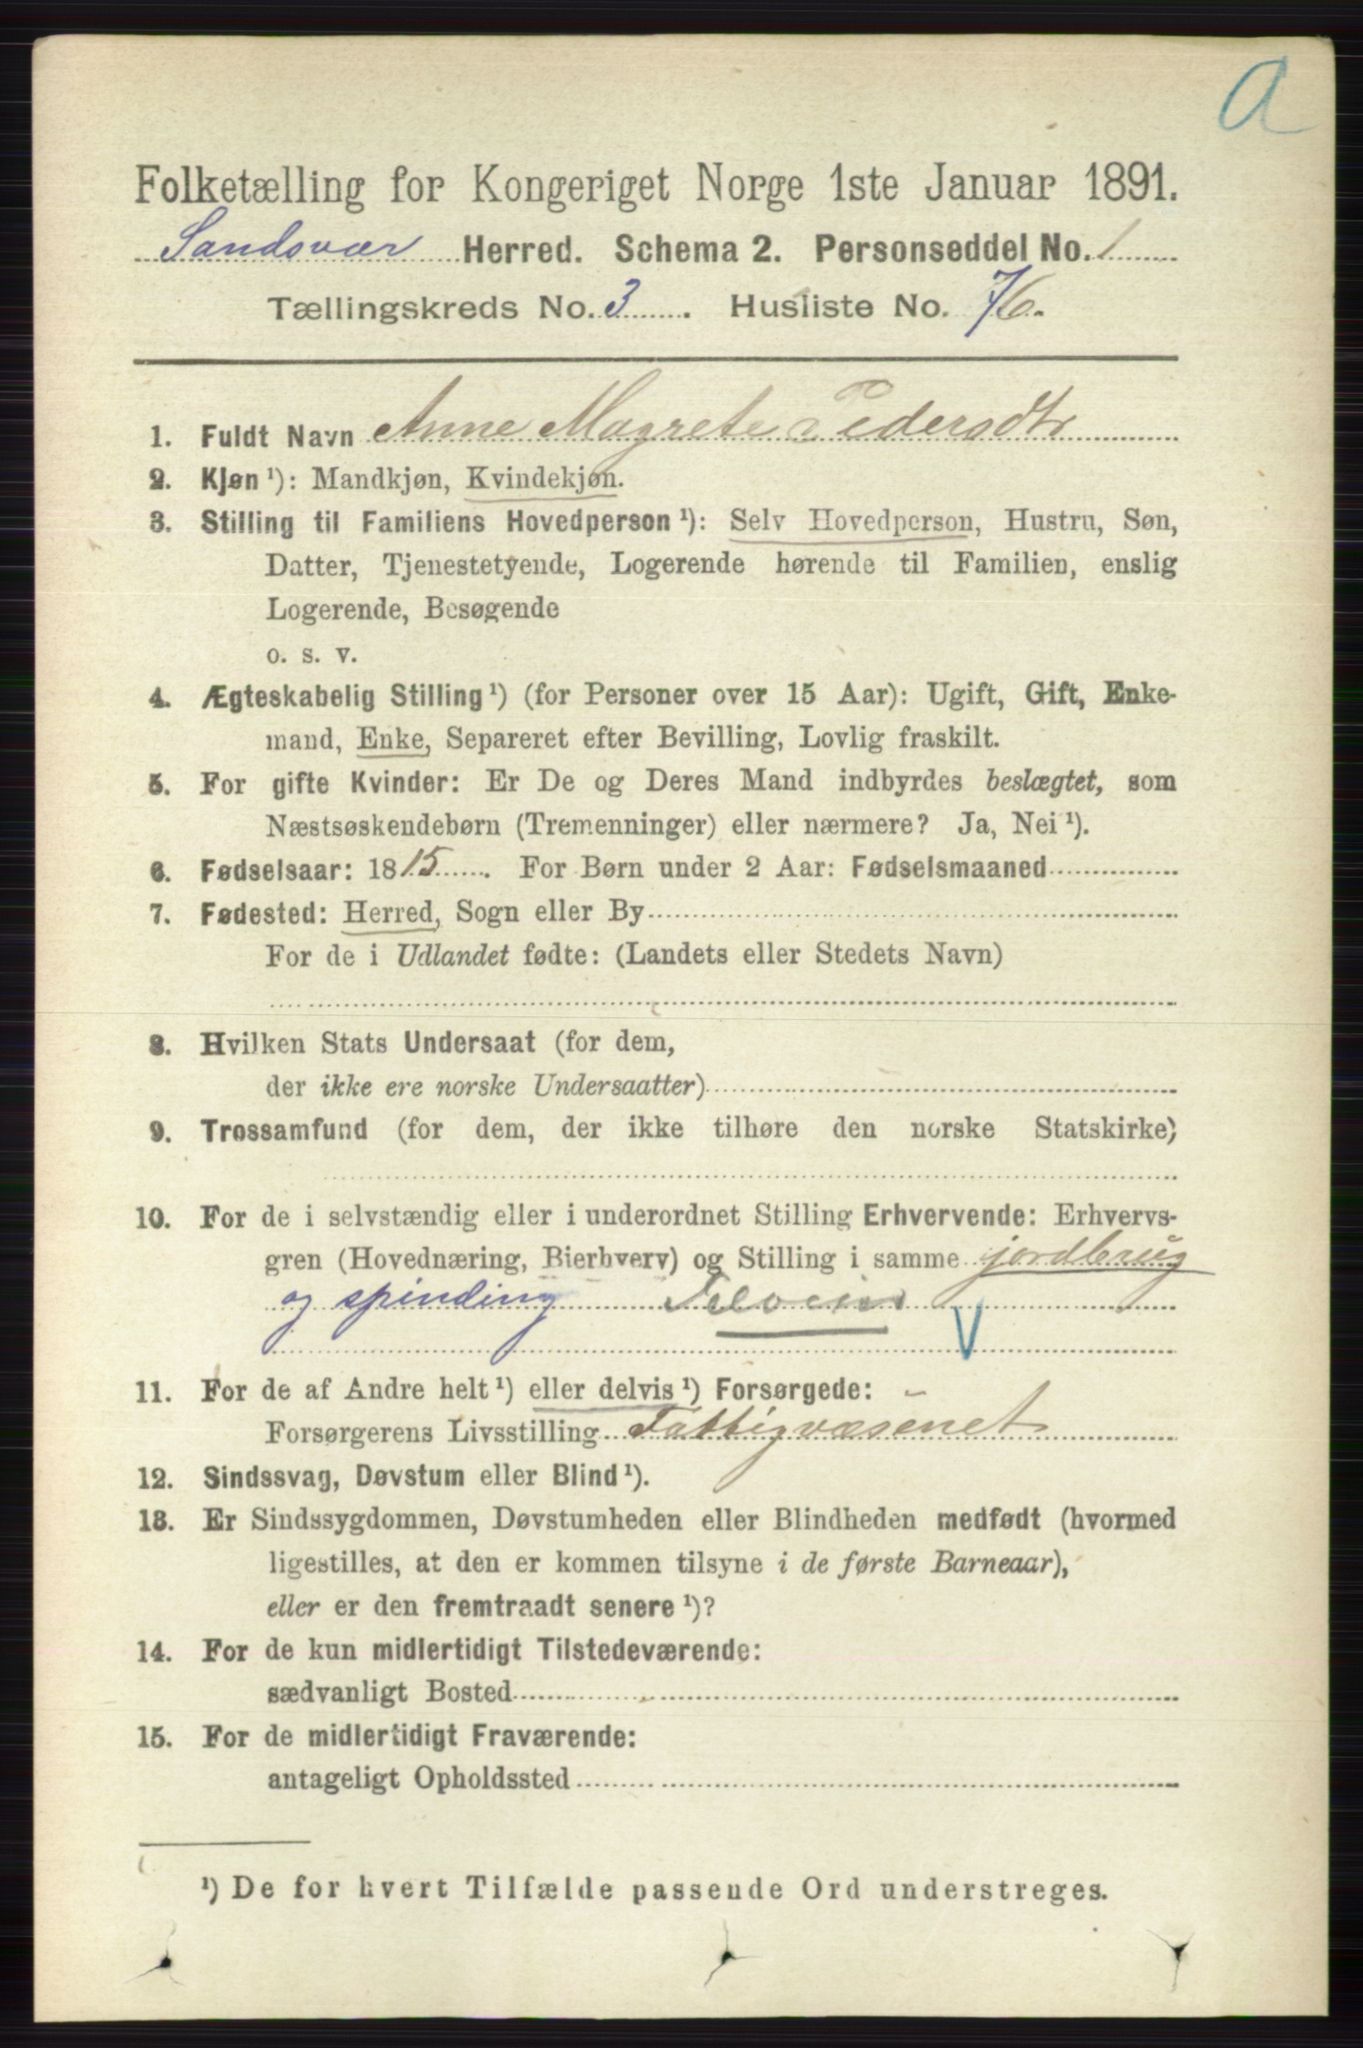 a
Folketælling for Kongeriget Norge 1ste Januar 1891.
Sandsvær Herred. Schema 2. Personseddel No. 1
Tællingskreds No. 3 . Husliste No. 76.
1. Fuldt Navn Anne Magrete Pedersdtr
2. Kjøn ¹): Mandkjøn, Kvindekjøn.
3. Stilling til Familiens Hovedperson ¹): Selv Hovedperson, Hustru, Søn,
Datter, Tjenestetyende, Logerende hørende til Familien, enslig
Logerende, Besøgende
o. s. v.
4. Ægteskabelig Stilling ¹) (for Personer over 15 Aar): Ugift, Gift, Enke-
mand, Enke, Separeret efter Bevilling, Lovlig fraskilt.
5. For gifte Kvinder: Er De og Deres Mand indbyrdes beslægtet, som
Næstsøskendebørn (Tremenninger) eller nærmere? Ja, Nei ¹).
6. Fødselsaar: 1815 . For Børn under 2 Aar: Fødselsmaaned
7. Fødested: Herred, Sogn eller By
For de i Udlandet fødte: (Landets eller Stedets Navn)
8. Hvilken Stats Undersaat (for dem,
der ikke ere norske Undersaatter)
9. Trossamfund (for dem, der ikke tilhøre den norske Statskirke)
10. For de i selvstændig eller i underordnet Stilling Erhvervende: Erhvervs-
gren (Hovednæring, Bierhverv) og Stilling i samme jordbrug
og spinding
V
11. For de af Andre helt ¹) eller delvis ¹) Forsørgede:
Forsørgerens Livsstilling Fattigvæsenet
12. Sindssvag, Døvstum eller Blind ¹).
13. Er Sindssygdommen, Døvstumheden eller Blindheden medfødt (hvormed
ligestilles, at den er kommen tilsyne i de første Barneaar),
eller er den fremtraadt senere ¹)?
14. For de kun midlertidigt Tilstedeværende:
sædvanligt Bosted
15. For de midlertidigt Fraværende:
antageligt Opholdssted
¹) De for hvert Tilfælde passende Ord understreges.